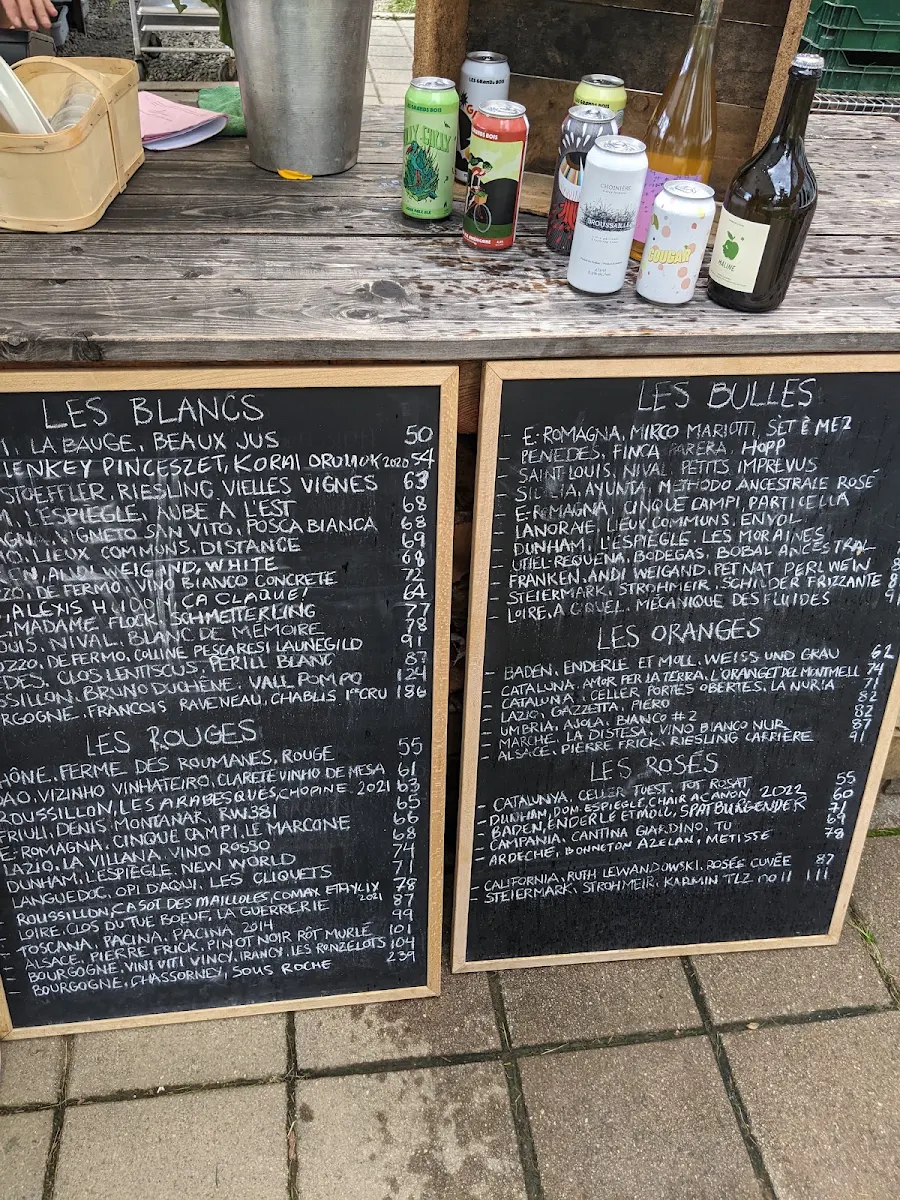 LES GRANDS BOIS
CHOINIÈRE
BROUSSAILLE
COUGAR
MALINE
LES BLANCS
LA BAUGE, BEAUX JUS 50
LENKEY PINCESZET, KORAI OROMOK 2020 54
STOEFFLER, RIESLING VIELLES VIGNES 63
L'ESPIEGLE, AUBE À L'EST 68
VIGNETO SAN VITO, POSCA BIANCA 68
LIEUX COMMUNS, DISTANCE 69
WEIGAND, WHITE 68
DE FERMO, VINO BIANCO CONCRETE 72
ALEXIS HUDON, ÇA CLAQUE! 64
MADAME FLOCK, SCHMETTERLING 77
NIVAL, BLANC DE MÉMOIRE 78
DE FERMO, COLLINE PESCARESI LAUNEGILD 91
CLOS LENTISCUS, PERILL BLANC 87
BRUNO DUCHÊNE, VALL POMPO 124
FRANCOIS RAVENEAU, CHABLIS 1ER CRU 186
LES ROUGES
FERME DES ROUMANES, ROUGE 55
VIZINHO VINHATEIRO, CLARETE VINHO DE MESA 61
ROUSSILLON, LES ARABESQUES, CHOPINE. 2021 63
FRIULI, DENIS MONTANAR, RW381 65
E-ROMAGNA, CINQUE CAMPI, LE MARCONE 66
LAZIO, LA VILLANA, VINO ROSSO 68
DUNHAM, L'ESPIEGLE, NEW WORLD 74
LANGUEDOC, OPI D'AQUI, LES CLIQUETS 71
ROUSSILLON, CASOT DES MAILLOLES, COMAX ETHYLIX 2021 78
LOIRE, CLOS DU TUE BOEUF, LA GUERRERIE 87
- TOSCANA, PACINA, PACINA 2014 99
- ALSACE, PIERRE FRICK, PINOT NOIR RÔT MURLÉ 101
- BOURGOGNE, VINI VITI VINCI, IRANCY, LES RONZELOTS 104
- BOURGOGNE, CHASSORNEY, SOUS ROCHE 239
LES BULLES
- E-ROMAGNA, MIRCO MARIOTTI, SÈT E MEZ
- PENEDES, FINCA PARERA, HOPP
- SAINT-LOUIS, NIVAL, PETITS IMPRÉVUS
- AYUNTA, METHODO ANCESTRALE ROSÉ
- E-ROMAGNA, CINQUE CAMPI, PARTICELLA
- LANORAIE, LIEUX COMMUNS, ENVOL
- DUNHAM, L'ESPIEGLE, LES MORAINES
- UTIEL-REQUENA, BODEGAS, BOBAL ANCESTRAL
- FRANKEN, ANDI WEIGAND, PETNAT PERLWEIN
- STEIERMARK, STROHMEIR, SCHILDER FRIZZANTE
- LOIRE, MÉCANIQUE DES FLUIDES
LES ORANGES
- BADEN, ENDERLE ET MOLL, WEISS UND GRAU 62
- CATALUNA, AMOR PER LA TERRA, L'ORANGET DEL MONTMELL 74
- CATALUNA, CELLER PORTES OBERTES, LA NURIA 71
- LAZIO, GAZZETTA, PIERO 82
- UMBRIA, AJOLA, BIANCO #2 82
- MARCHE, LA DISTESA, VINO BIANCO NUR 87
- ALSACE, PIERRE FRICK, RIESLING CARRIÈRE 91
LES ROSÉS
- CATALUNYA, CELLER TUEST, TOT ROSAT 55
- DUNHAM, DOM. ESPIEGLE, CHAIR À CANON 2022 60
- BADEN, ENDERLE ET MOLL, SPÄTBURGENDER 71
- CAMPANIA, CANTINA GIARDINO, TU 69
- ARDECHE, BONNETON AZELAN, METISSE 78
- CALIFORNIA, RUTH LEWANDOWSKI, ROSÉE CUVÉE 87
- STEIERMARK, STROHMEIR, KARMIN TLZ NO 11 111